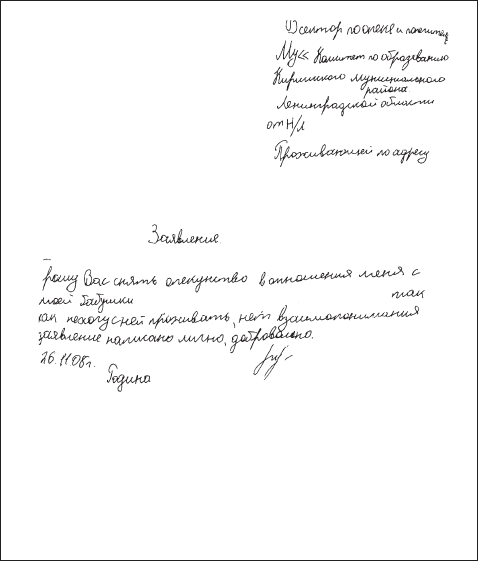 В сектор по опеке и попечител
Му<< Комитет по образованию
Киришского муниципального
района
Ленинградской области
от Н/Л
Проживающей по адресу
Заявление.
рошу Вас снять опекунство в отношения меня с
моей бабушки так
как не хочу с ней проживать, нет взаимопонимания
заявление написано лично, добровольно.
26.11.08г.
Година